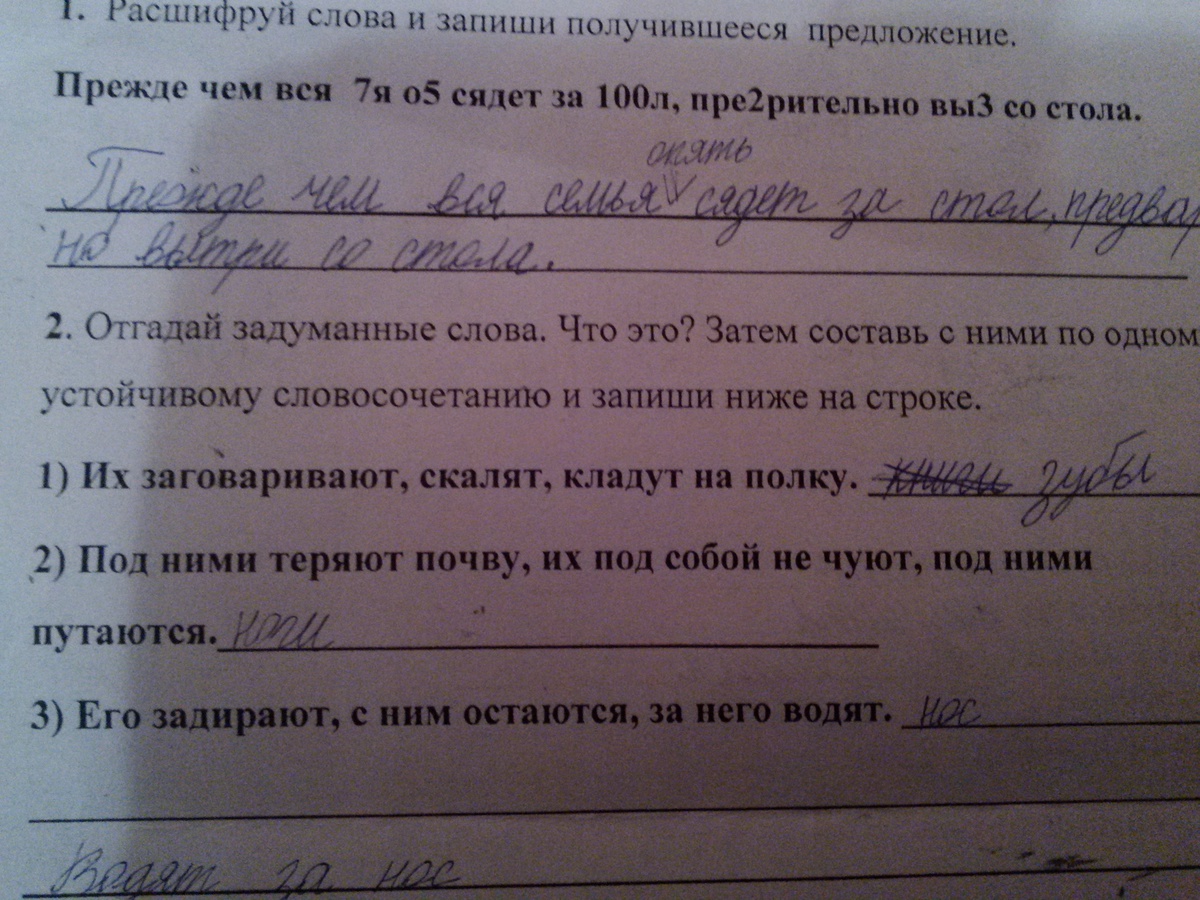 1. Расшифруй слова и запиши получившееся предложение.
Прежде чем вся 7я о5 сядет за 100л, пре2рительно вы3 со стола.
опять
Прежде чем вся семья сядет за стол, предвар
но вытри со стола.
2. Отгадай задуманные слова. Что это? Затем составь с ними по одном
устойчивому словосочетанию и запиши ниже на строке.
1) Их заговаривают, скалят, кладут на полку. книги зубы
2) Под ними теряют почву, их под собой не чуют, под ними
путаются. ноги
3) Его задирают, с ним остаются, за него водят. нос
Водят за нос